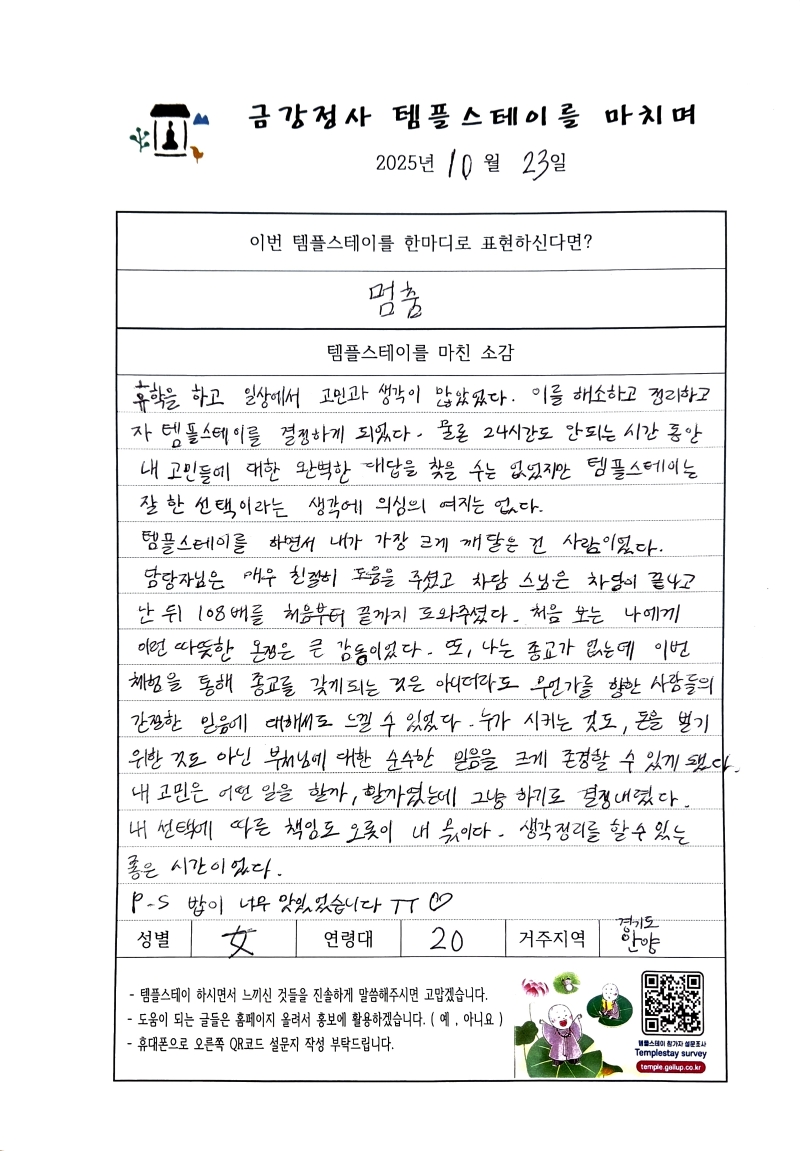 금강정사 템플스테이를 마치며
2025년 10월 23일
이번 템플스테이를 한마디로 표현하신다면?
멈춤
템플스테이를 마친 소감
휴학을 하고 일상에서 고민과 생각이 많았었다. 이를 해소하고 정리하고
자 템플스테이를 결정하게 되었다. 물론 24시간도 안되는 시간 동안
내 고민들에 대한 완벽한 대답을 찾을 수는 없었지만 템플스테이는
잘 한 선택이라는 생각에 의심의 여지는 없다.
템플스테이를 하면서 내가 가장 크게 깨달은 건 사람이었다.
담당자님은 매우 친절히 도움을 주셨고 차담 스님은 차담이 끝나고
난 뒤 108배를 처음부터 끝까지 도와주셨다. 처음 보는 나에게
이런 따뜻한 온정은 큰 감동이었다. 또, 나는 종교가 없는데 이번
체험을 통해 종교를 갖게되는 것은 아니더라도 무언가를 향한 사람들의
간절한 믿음에 대해서도 느낄 수 있었다. 누가 시키는 것도, 돈을 벌기
위한 것도 아닌 부처님에 대한 순수한 믿음을 크게 존경할 수 있게 됐다.
내 고민은 어떤 일을 할까, 말까였는데 그냥 하기로 결정내렸다.
내 선택에 따른 책임도 오롯이 내 몫이다. 생각정리를 할 수 있는
좋은 시간이었다.
P-S 밥이 너무 맛있었습니다 ㅠㅠ ♡
성별 女 연령대 20 거주지역 경기도 안양
- 템플스테이 하시면서 느끼신 것들을 진솔하게 말씀해주시면 고맙겠습니다.
- 도움이 되는 글들은 홈페이지 올려서 홍보에 활용하겠습니다. ( 예 , 아니요 )
- 휴대폰으로 오른쪽 QR코드 설문지 작성 부탁드립니다.
템플스테이 참가자 설문조사
Templestay survey
temple.gallup.co.kr